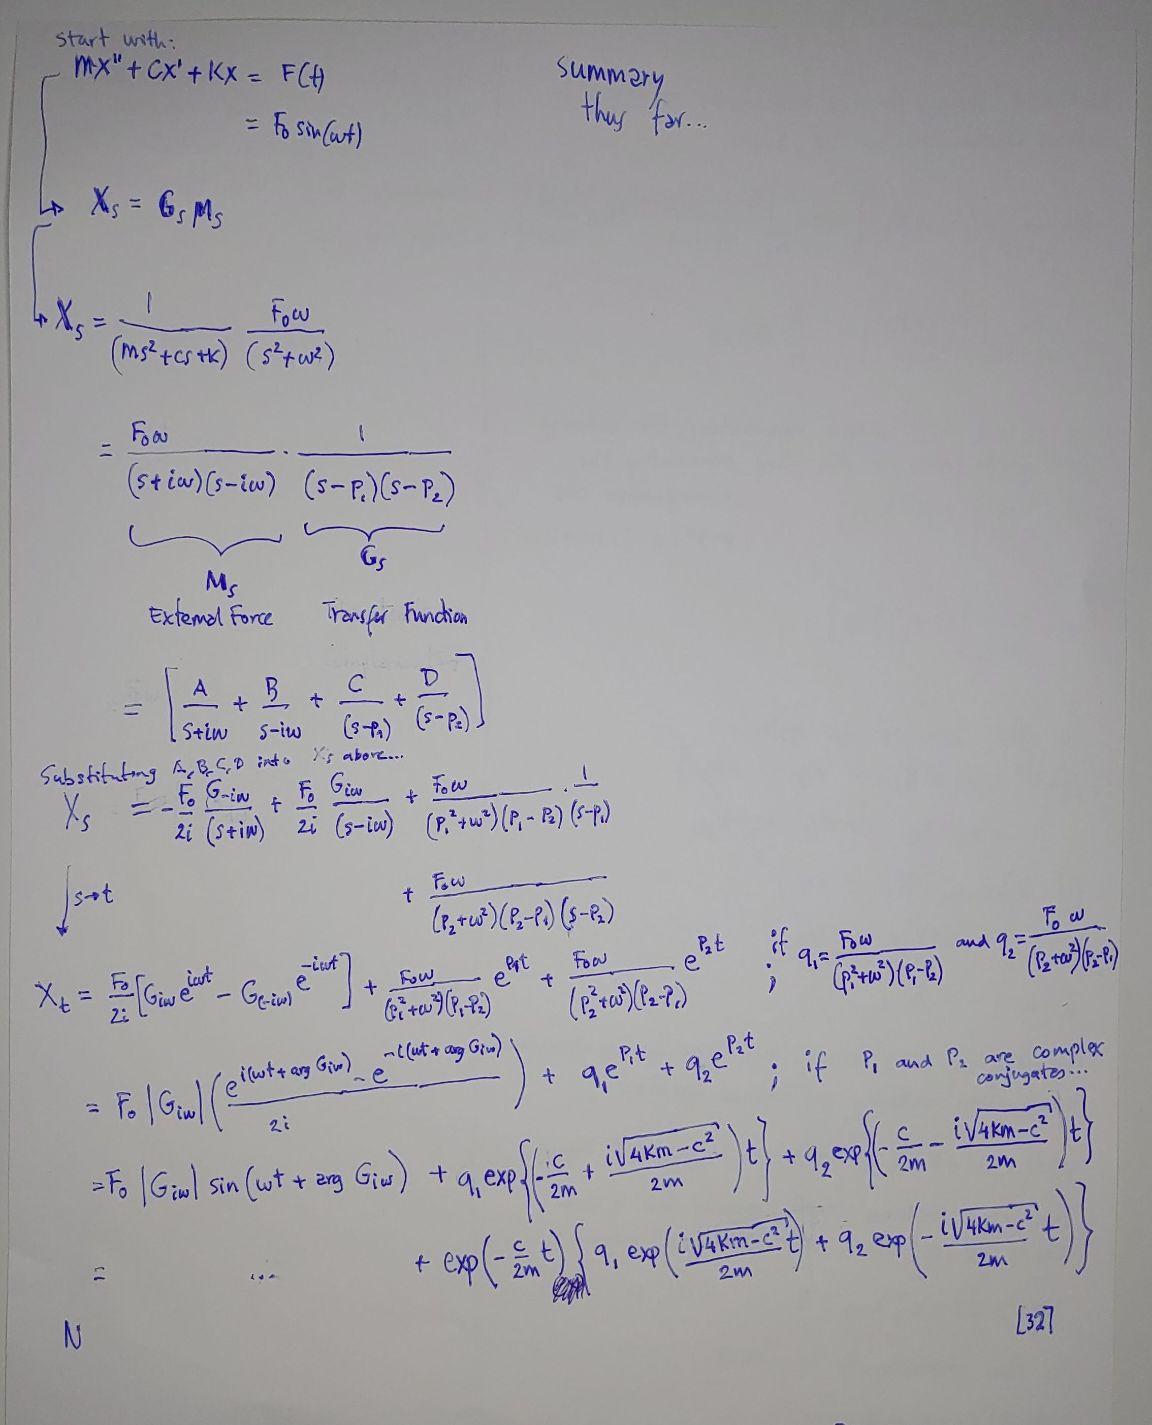 start with:
mx" + cx' + kx = F(t)
= F₀ sin(ωt)
summary
thus far...
Xₛ = Gₛ Mₛ
Xₛ = 1/(ms²+cs+k) F₀ω/(s²+ω²)
= F₀ω/((s+iω)(s-iω)) · 1/((s-P₁)(s-P₂))
Gₛ
Mₛ
External Force Transfer Function
= [A/(s+iω) + B/(s-iω) + C/(s-P₁) + D/(s-P₂)]
Substituting A, B, C, D into Xₛ above...
Xₛ = -F₀/2i G₋iω/(s+iω) + F₀/2i Giω/(s-iω) + F₀ω/((P₁²+ω²)(P₁-P₂)) · 1/(s-P₁)
s→t
+ F₀ω/((P₂+ω²)(P₂-P₁)(s-P₂))
Xₜ = F₀/2i [Giω e^(iωt) - G(-iω) e^(-iωt)] + F₀ω/((P₁²+ω²)(P₁-P₂)) e^(P₁t) + F₀ω/((P₂²+ω²)(P₂-P₁)) e^(P₂t) ; if q₁ = F₀ω/((P₁²+ω²)(P₁-P₂)) and q₂ = F₀ω/((P₂+ω²)(P₂-P₁))
= F₀ |Giω| ((e^(i(ωt + arg Giω)) - e^(-i(ωt + arg Giω)))/2i) + q₁e^(P₁t) + q₂e^(P₂t) ; if P₁ and P₂ are complex
conjugates...
= F₀ |Giω| sin(ωt + arg Giω) + q₁ exp{(-c/2m + i√(4km-c²)/2m) t} + q₂ exp{(-c/2m - i√(4km-c²)/2m) t}
= ... + exp(-c/2m t) {q₁ exp(i√(4km-c²)/2m t) + q₂ exp(-i√(4km-c²)/2m t)}
N
[32]